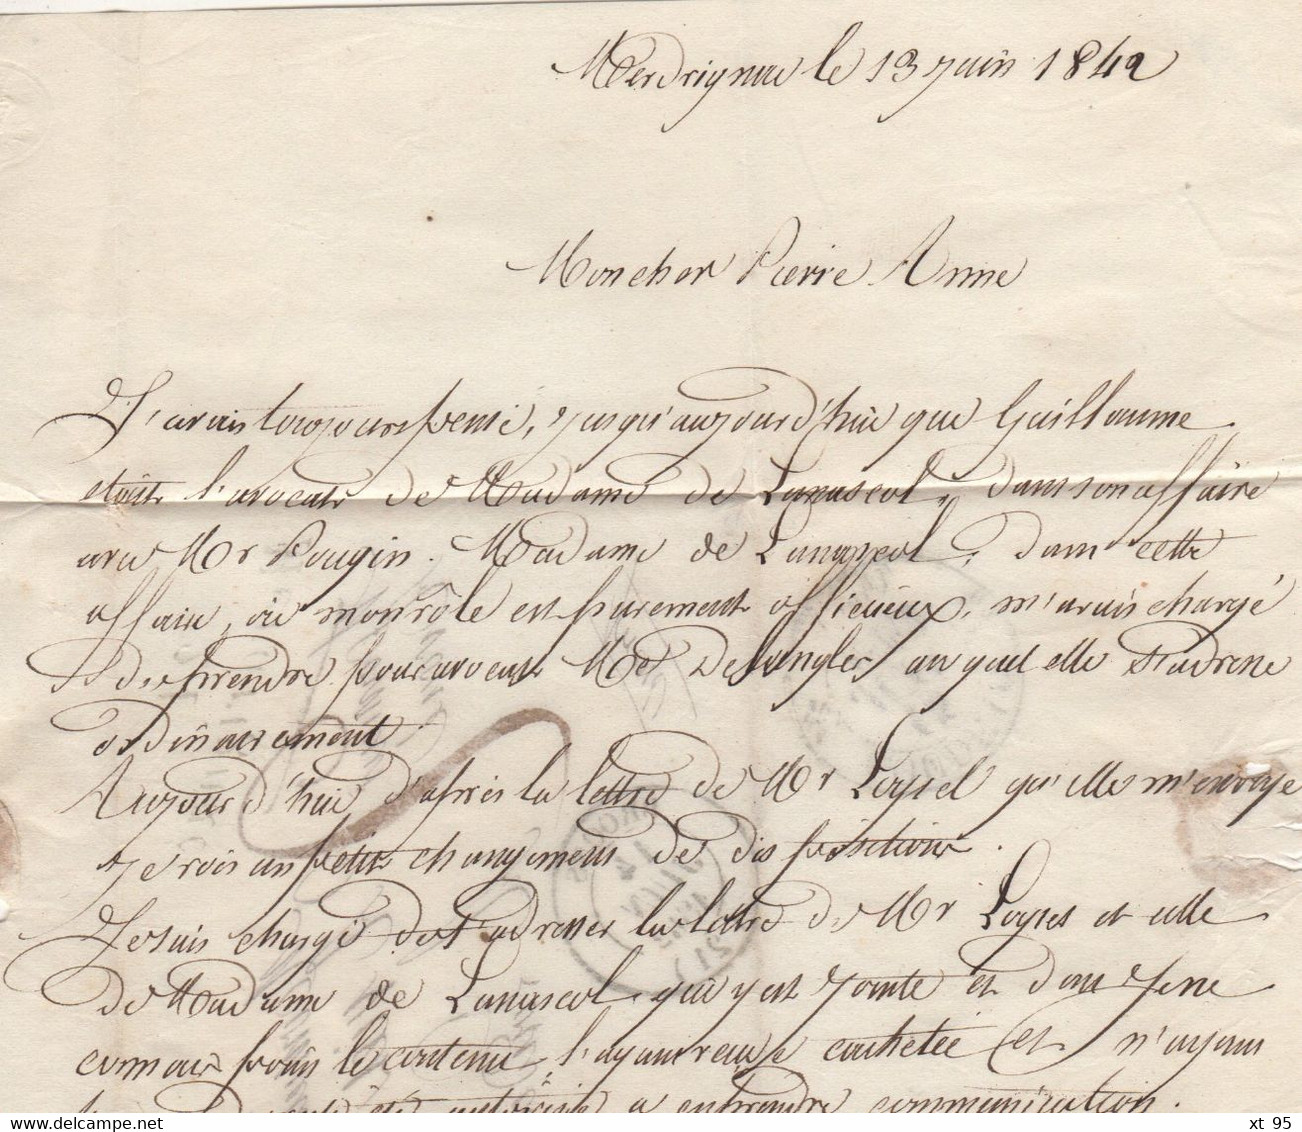 Merdrignac le 13 Juin 1842
Mon cher Pierre Anne
J'avais toujours pensé, jusqu'aujourd'hui que Guillaume
était l'avocat de Madame de Lanascol, dans son affaire
avec Mr Pougin. Madame de Lanascol, dans cette
affaire, où mon rôle est purement officieux, m'avais chargé
de prendre pour avocat Me Delangles auquel elle s'adresse
ordinairement
Aujourd'hui d'après la lettre de Mr Loysel qu'elle m'envoye
je vois un petit changement de disposition.
Je suis chargé de t'adresser la lettre de Mr Loysel et celle
de Madame de Lanascol, qui y est jointe et dont je ne
connais point le contenu, l'ayant reçue cachetée et n'ayant
autorisé a en prendre communication.
xt 95